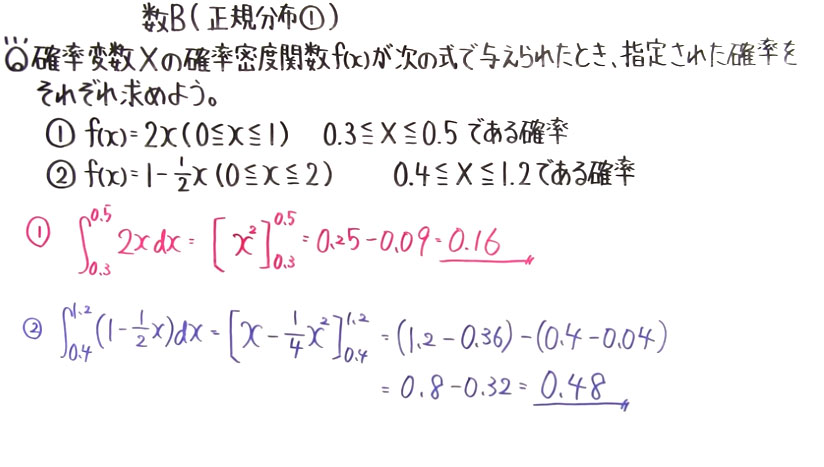 数B(正規分布①)
Q 確率変数Xの確率密度関数f(x)が次の式で与えられたとき、指定された確率を
それぞれ求めよう。
① f(x)=2x(0≦x≦1) 0.3≦X≦0.5である確率
② f(x)=1-1/2x(0≦x≦2) 0.4≦X≦1.2である確率
① ∫_{0.3}^{0.5} 2xdx=[x²]_{0.3}^{0.5}=0.25-0.09=0.16
② ∫_{0.4}^{1.2}(1-1/2x)dx=[x-1/4x²]_{0.4}^{1.2}=(1.2-0.36)-(0.4-0.04)
=0.8-0.32=0.48